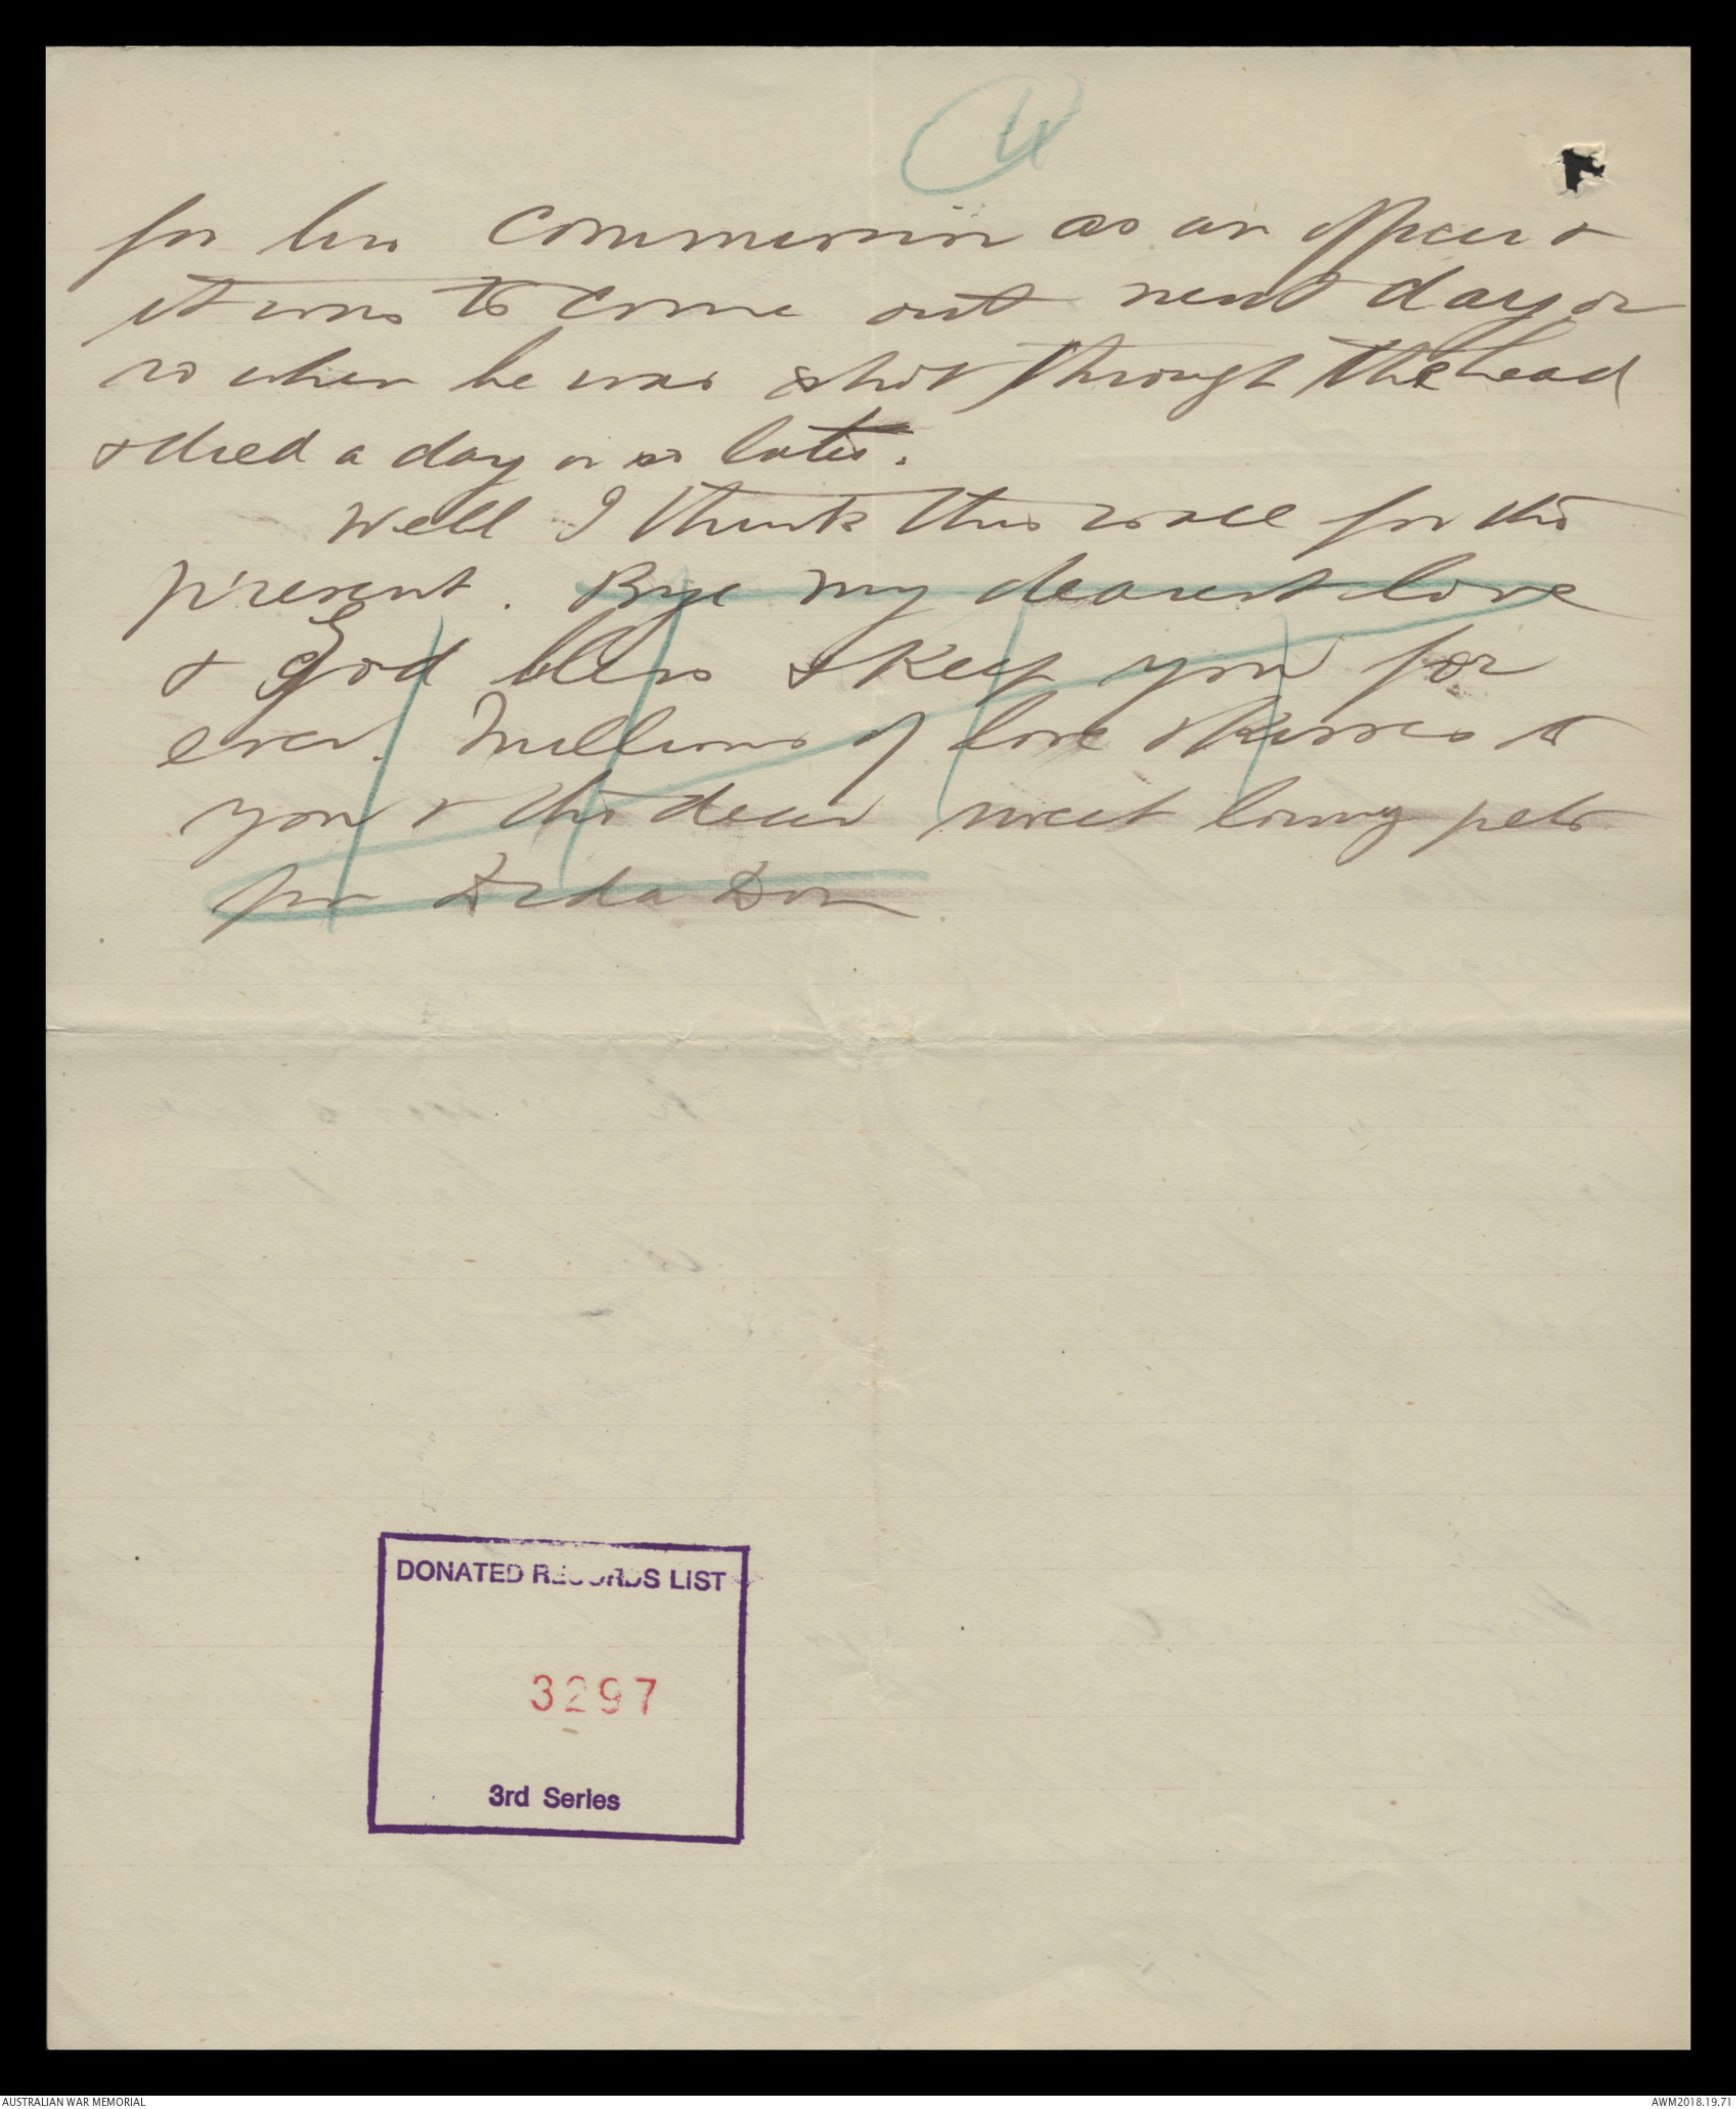 4
for his commission as an officer &
it was to come out next day or
so when he was shot through the head
& died a day or so later.
Well I think this is all for the
present. Bye my dearest love
& God bless & keep you for
ever. Millions of love & kisses to
you & the dear sweet loving pets
for Dada Don
DONATED RECORDS LIST
3297
3rd Series
AUSTRALIAN WAR MEMORIAL
AWM2018.19.71